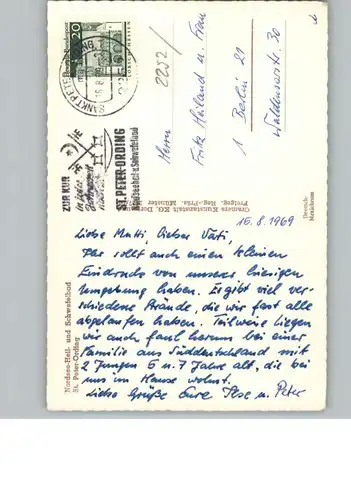 20
Deutsche Bundespost
SANKT PETER-ORDING
2252
ZUR KUR
in jeder
Jahreszeit
nach
ST. PETER-ORDING
Nordseeheil-u.Schwefelbad
2252/
Herrn
Fritz Heiland u. Frau
1 Berlin 21
Waldenserstr. 30
Cramers Kunstanstalt KG, Dortmund
Freigeg. Reg.-Präs. Münster
Nordsee-Heil- und Schwefelbad
St. Peter-Ording
16.8.1969
Liebe Mutti, lieber Vati,
Ihr sollt auch einen kleinen
Eindruck von unserer hiesigen
Umgebung haben. Es gibt viel ver-
schiedene Strände, die wir fast alle
abgelaufen haben. Teilweise liegen
wir auch faul herum bei einer
Familie aus Süddeutschland mit
2 Jungen 6 u. 7 Jahre alt, die bei
uns im Hause wohnt.
Liebe Grüße Eure Ilse u. Peter